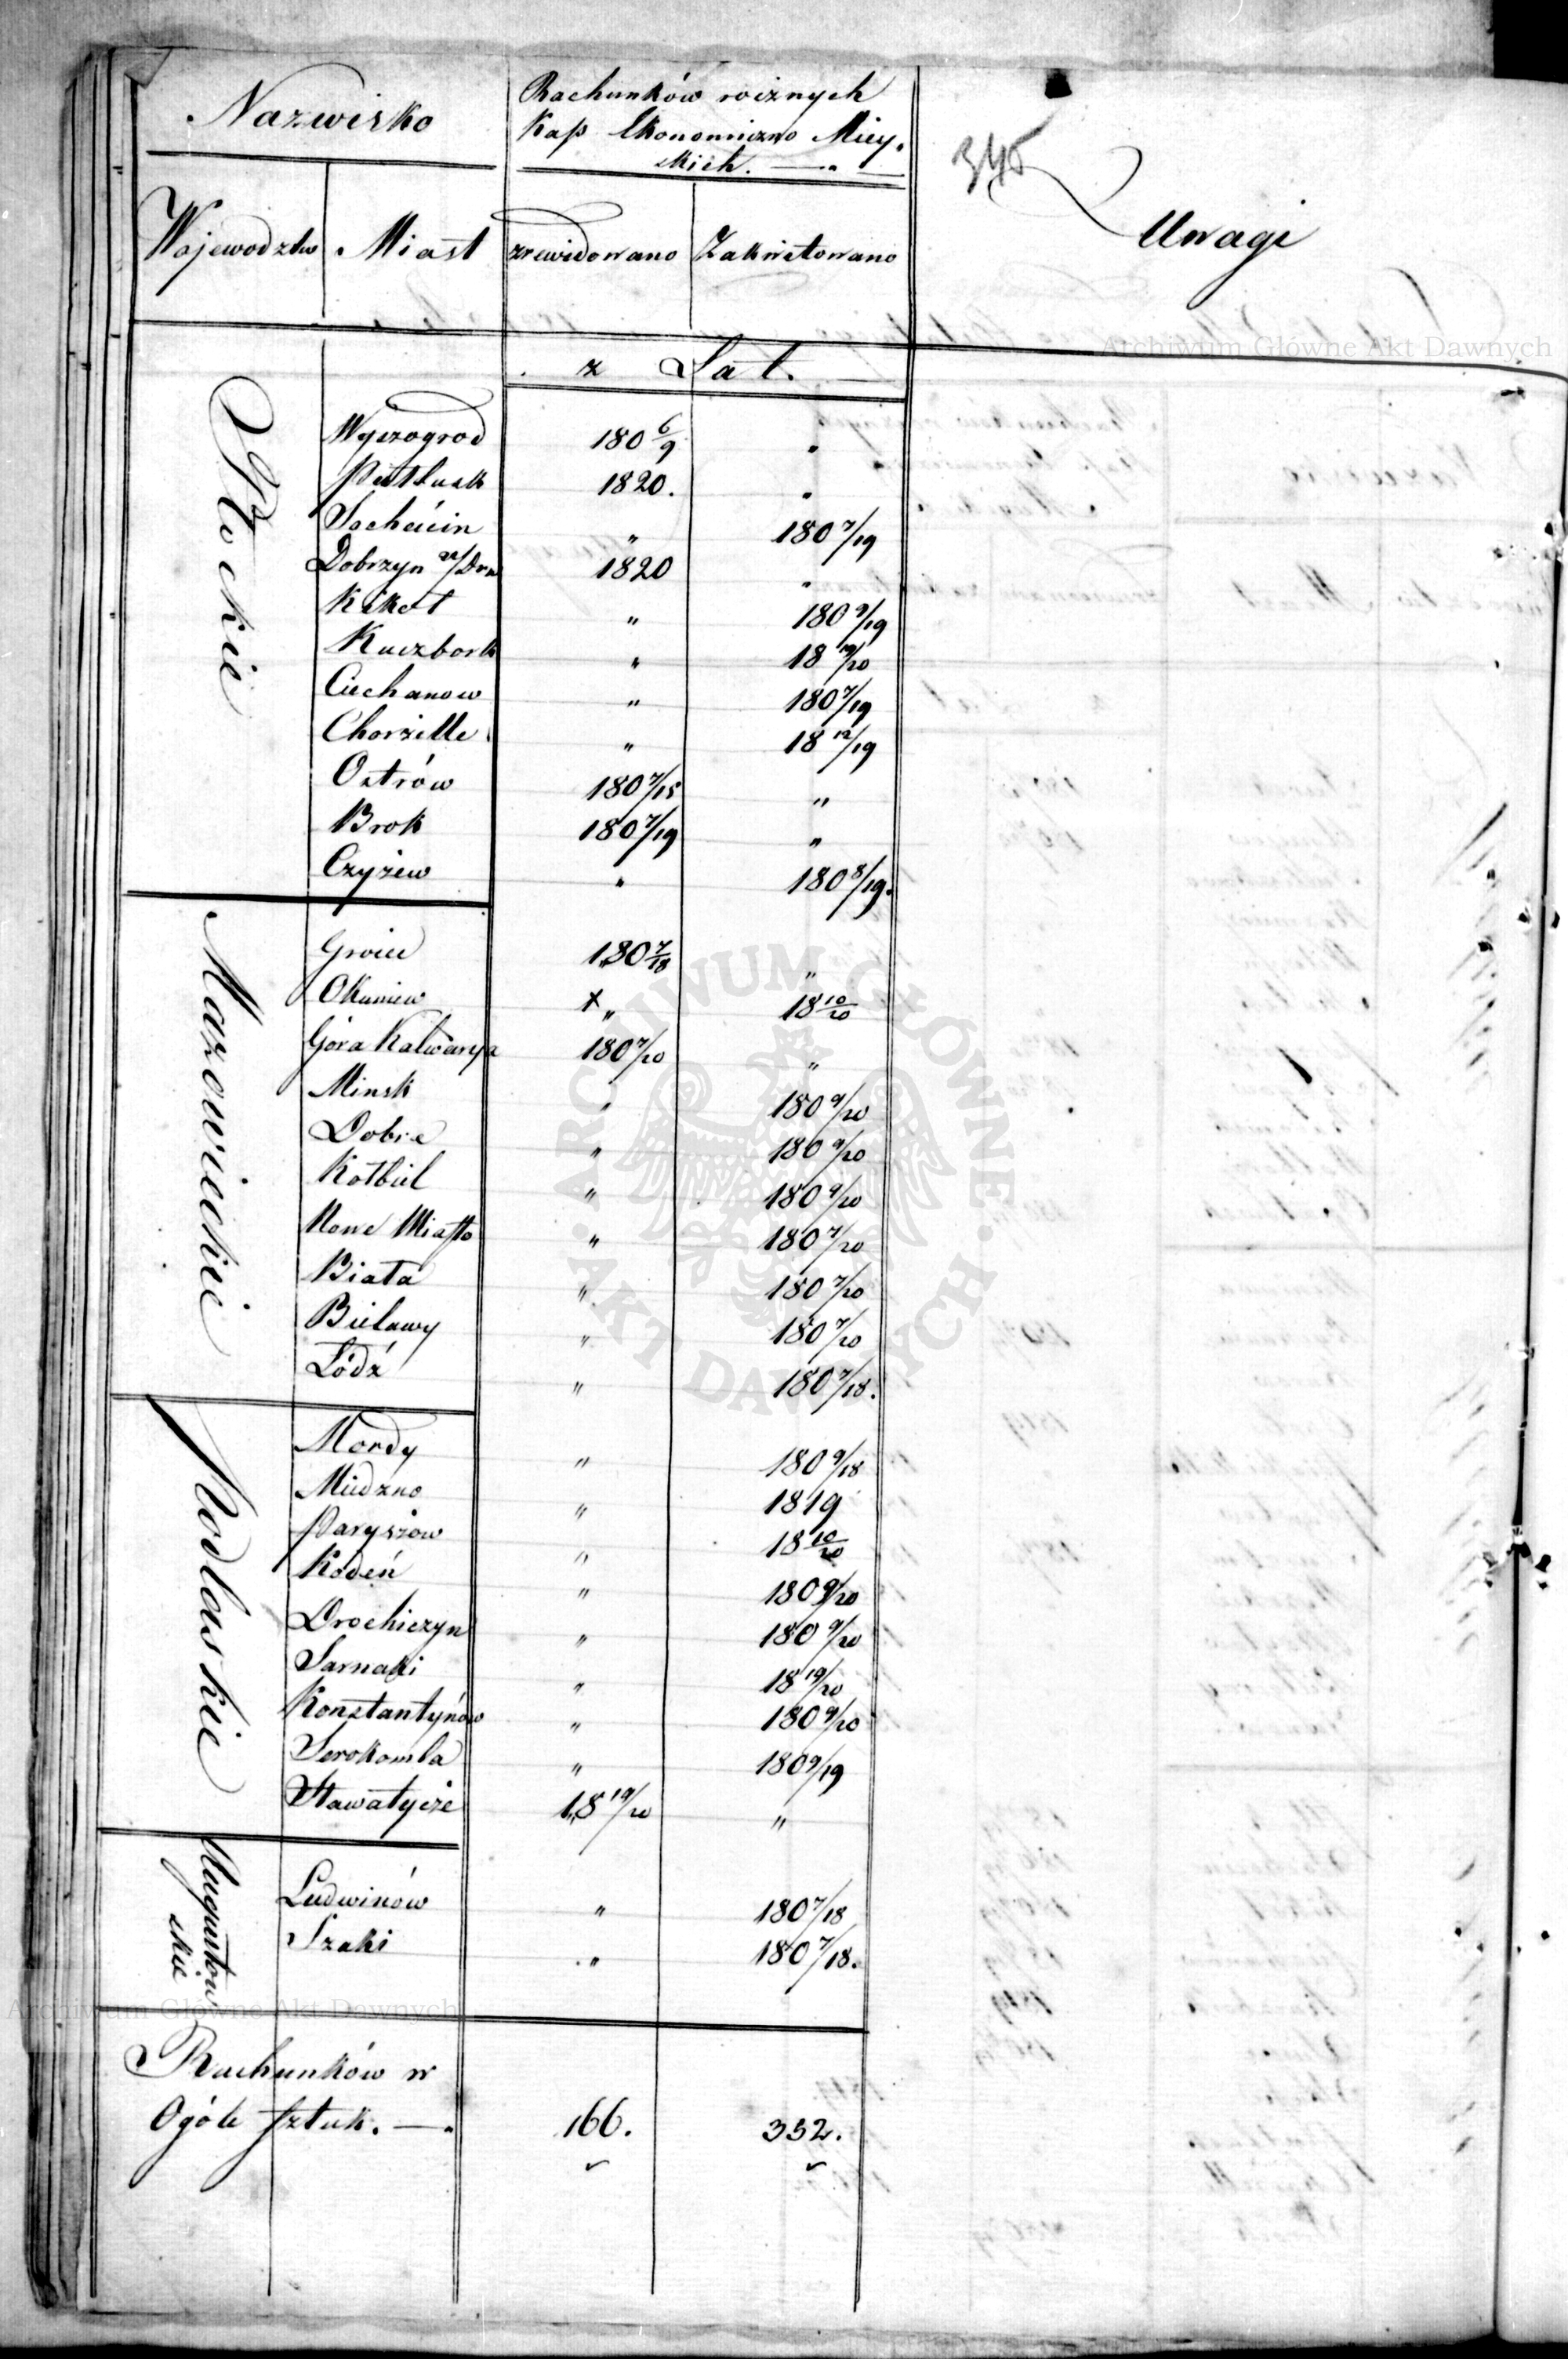 Nazwisko
Rachunków rocznych
Kass Ekonomiczno Miey-
skich. —
345
Wojewodztw
Miast
zrewidowano
Zakwitowano
Uwagi
Archiwum Główne Akt Dawnych
z Lat.
Płockie
Wyszogrod 180 6/9 "
Pułtusk 1820. "
Sochocin " 180 7/19
Dobrzyn n/Drw 1820 "
Kikoł " 180 9/19
Kuczbork " 18 19/20
Ciechanow " 180 7/19
Chorzelle " 18 12/19
Ostrów 180 7/15 "
Brok 180 7/19 "
Czyżew " 180 8/19.
Mazowieckie
Groiec 180 7/18 "
Okuniew + " 18 10/20
Góra Kalwarya 180 7/20 "
Minsk " 180 9/20
Dobre " 180 9/20
Kołbiel " 180 9/20
Nowe Miasto " 180 7/20
Biała " 180 7/20
Bielawy " 180 7/20
Łódź " 180 7/18.
Podlaskie
Mordy " 180 9/18
Miedzno " 1819
Paryszow " 18 10/20
Kodeń " 180 9/20
Drochiczyn " 180 9/20
Sarnaki " 18 19/20
Konstantynów " 180 9/20
Serokomla " 180 9/19
Sławatycze 18 19/20 "
Augustow
skie
Ludwinów " 180 7/18
Szaki " 180 7/18.
Archiwum Główne Akt Dawnych
Rachunków w
Ogóle sztuk. — 166. 332.
ARCHIWUM GŁÓWNE AKT DAWNYCH